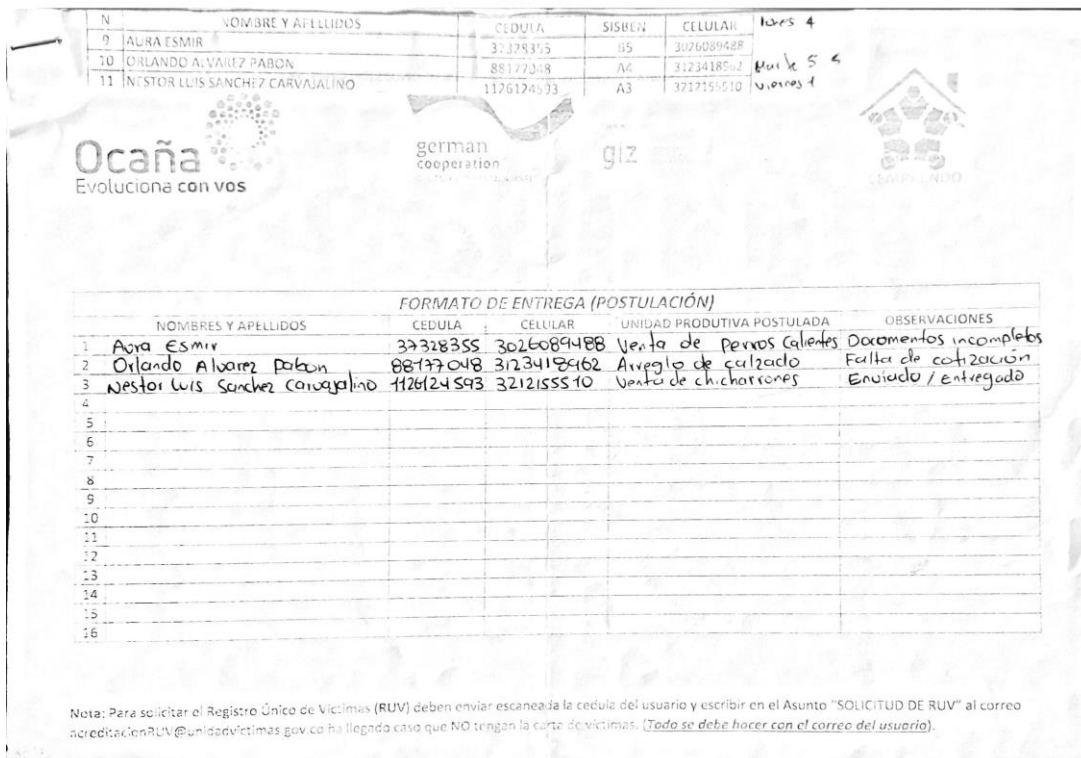 N NOMBRE Y APELLIDOS CEDULA SISBEN CELULAR
9 AURA ESMIR 37328355 B5 3026089488
10 ORLANDO ALVAREZ PABON 88177048 A4
11 NESTOR LUIS SANCHEZ CARVAJALINO 1126124593 A3
Ocaña
Evoluciona con vos
german
cooperation
giz
FORMATO DE ENTREGA (POSTULACIÓN)
NOMBRES Y APELLIDOS CEDULA CELULAR UNIDAD PRODUTIVA POSTULADA OBSERVACIONES
1 Aura Esmir 37328355 3026089488 Venta de perros calientes Documentos incompletos
2 Orlando Alvarez Pabon 88177048 3123418962 Arreglo de calzado Falta de cotización
3 Nestor Luis Sanchez Carvajalino 1126124593 3212155510 Venta de chicharrones Enviado / entregado
4
5
6
7
8
9
10
11
12
13
14
15
16
Nota: Para solicitar el Registro Único de Victimas (RUV) deben enviar escaneada la cedula del usuario y escribir en el Asunto "SOLICITUD DE RUV" al correo
acreditacionRUV@unidadvictimas.gov.co ha llegado caso que NO tengan la carta de victimas. (Todo se debe hacer con el correo del usuario).